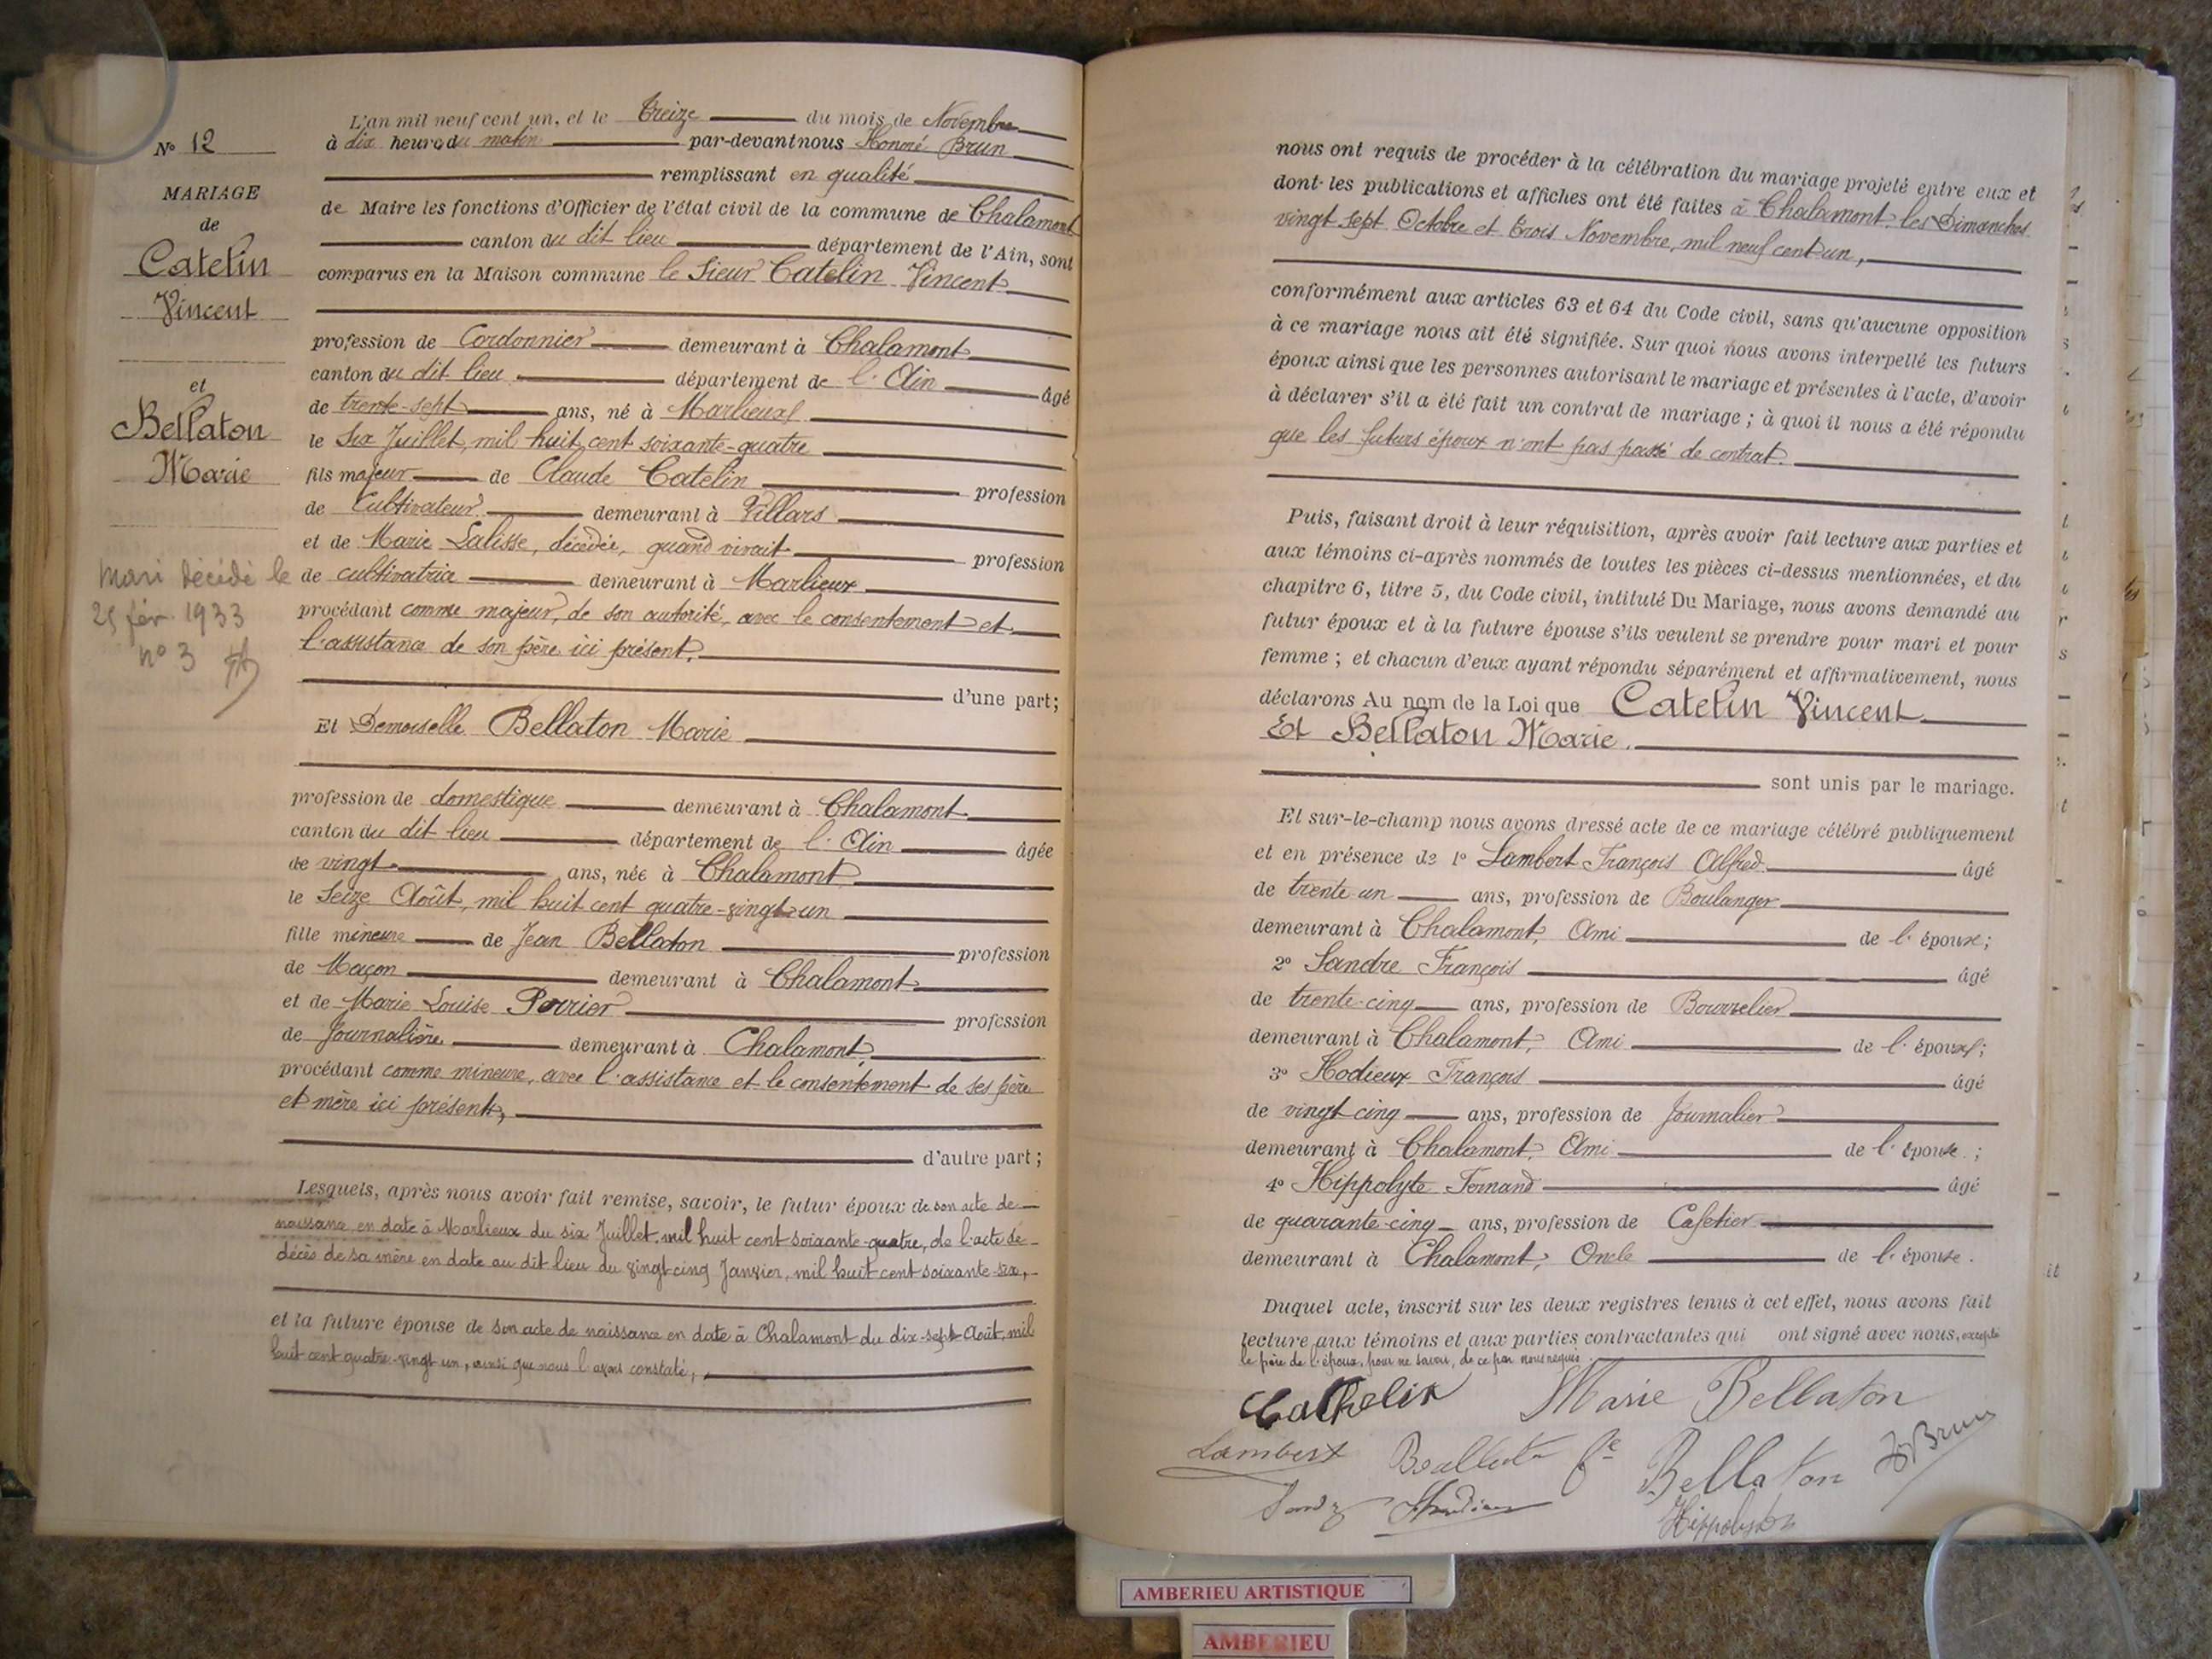 N° 12
MARIAGE
de
Catelin
Vincent
et
Bellaton
Marie
Mari décédé le
25 fév. 1933
n° 3
L'an mil neuf cent un, et le Treize du mois de Novembre
à dix heure du matin par-devant nous Honoré Brun
remplissant en qualité
de Maire les fonctions d'Officier de l'état civil de la commune de Chalamont
canton du dit lieu département de l'Ain, sont
comparus en la Maison commune le Sieur Catelin Vincent
profession de Cordonnier demeurant à Chalamont
canton du dit lieu département de l'Ain âgé
de trente-sept ans, né à Marlieux
le Six Juillet, mil huit cent soixante-quatre
fils majeur de Claude Catelin profession
de Cultivateur demeurant à Villars
et de Marie Lalisse, décédée, quand vivait profession
de cultivatrice demeurant à Marlieux
procédant comme majeur, de son autorité, avec le consentement et
l'assistance de son père ici présent,
d'une part;
Et Demoiselle Bellaton Marie
profession de domestique demeurant à Chalamont
canton du dit lieu département de l'Ain âgée
de vingt ans, née à Chalamont
le Seize Août, mil huit cent quatre-vingt-un
fille mineure de Jean Bellaton profession
de Maçon demeurant à Chalamont
et de Marie Louise Perrier profession
de Journalière demeurant à Chalamont
procédant comme mineure, avec l'assistance et le consentement de ses père
et mère ici présents,
d'autre part;
Lesquels, après nous avoir fait remise, savoir, le futur époux de son acte de
naissance en date à Marlieux du six Juillet, mil huit cent soixante-quatre, de l'acte de
décès de sa mère en date au dit lieu du vingt cinq Janvier, mil huit cent soixante-six,
et la future épouse de son acte de naissance en date à Chalamont du dix-sept Août, mil
huit cent quatre-vingt un, ainsi que nous l'avons constaté,
nous ont requis de procéder à la célébration du mariage projeté entre eux et
dont les publications et affiches ont été faites à Chalamont les Dimanches
vingt sept Octobre et trois Novembre, mil neuf cent un,
conformément aux articles 63 et 64 du Code civil, sans qu'aucune opposition
à ce mariage nous ait été signifiée. Sur quoi nous avons interpellé les futurs
époux ainsi que les personnes autorisant le mariage et présentes à l'acte, d'avoir
à déclarer s'il a été fait un contrat de mariage; à quoi il nous a été répondu
que les futurs époux n'ont pas passé de contrat.
Puis, faisant droit à leur réquisition, après avoir fait lecture aux parties et
aux témoins ci-après nommés de toutes les pièces ci-dessus mentionnées, et du
chapitre 6, titre 5, du Code civil, intitulé Du Mariage, nous avons demandé au
futur époux et à la future épouse s'ils veulent se prendre pour mari et pour
femme; et chacun d'eux ayant répondu séparément et affirmativement, nous
déclarons Au nom de la Loi que Catelin Vincent
Et Bellaton Marie.
sont unis par le mariage.
Et sur-le-champ nous avons dressé acte de ce mariage célébré publiquement
et en présence de 1° Lambert François Alfred âgé
de trente un ans, profession de Boulanger
demeurant à Chalamont, Ami de l'époux;
2° Sandre François âgé
de trente-cinq ans, profession de Bourrelier
demeurant à Chalamont, Ami de l'époux;
3° Hodieux François âgé
de vingt cinq ans, profession de Journalier
demeurant à Chalamont, Ami de l'épouse;
4° Hippolyte Fernand âgé
de quarante-cinq ans, profession de Cafetier
demeurant à Chalamont, Oncle de l'épouse.
Duquel acte, inscrit sur les deux registres tenus à cet effet, nous avons fait
lecture aux témoins et aux parties contractantes qui ont signé avec nous, excepté
le père de l'époux, pour ne savoir, de ce par nous requis.
Cathelin Marie Bellaton
Lambert Bellaton HBrun
Hippolyte
AMBERIEU ARTISTIQUE
AMBERIEU